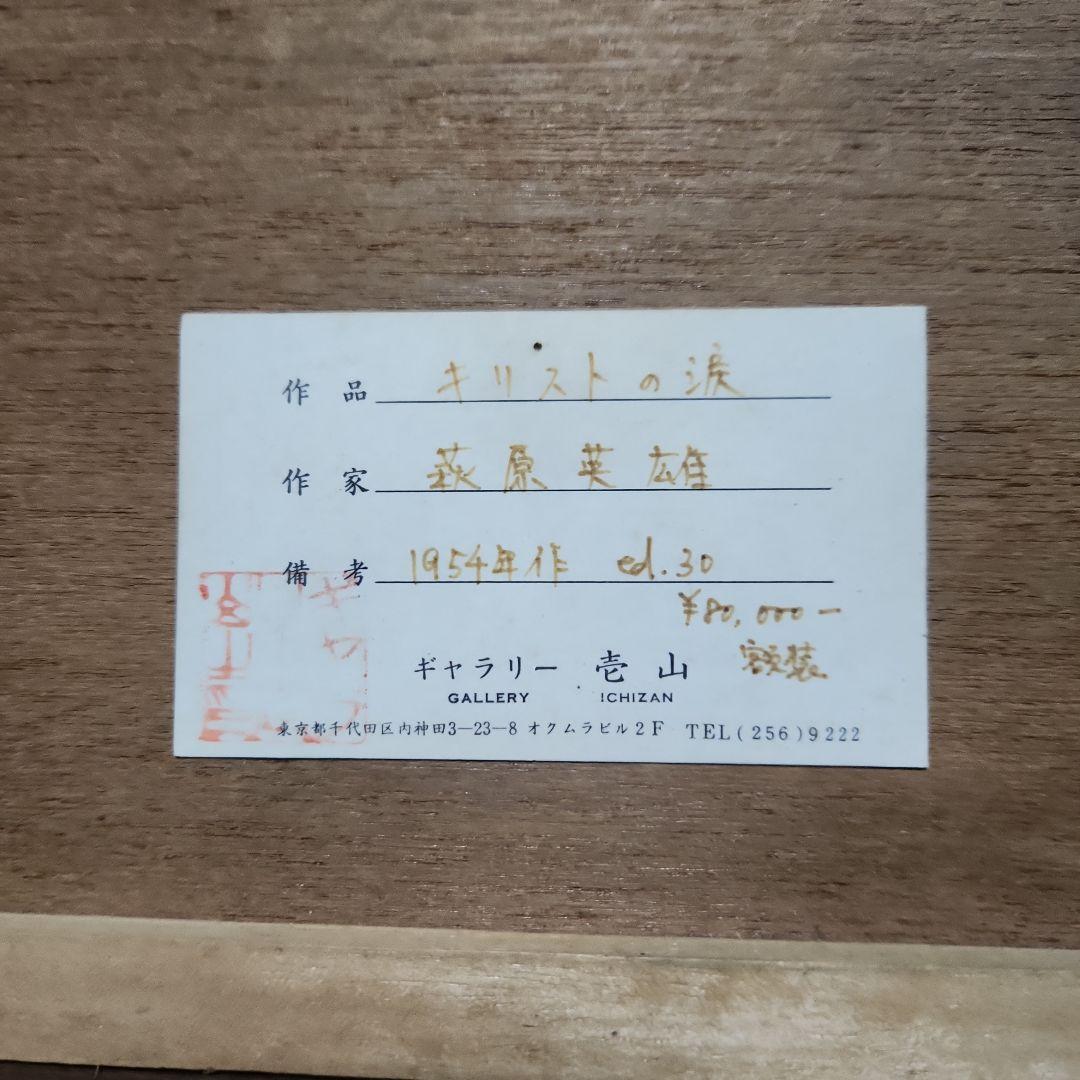 作品 キリストの涙
作家 萩原英雄
備考 1954年作 ed.30
¥80,000−
額装
ギャラリー 壱山
GALLERY ICHIZAN
東京都千代田区内神田3―23―8 オクムラビル2F TEL(256)9222